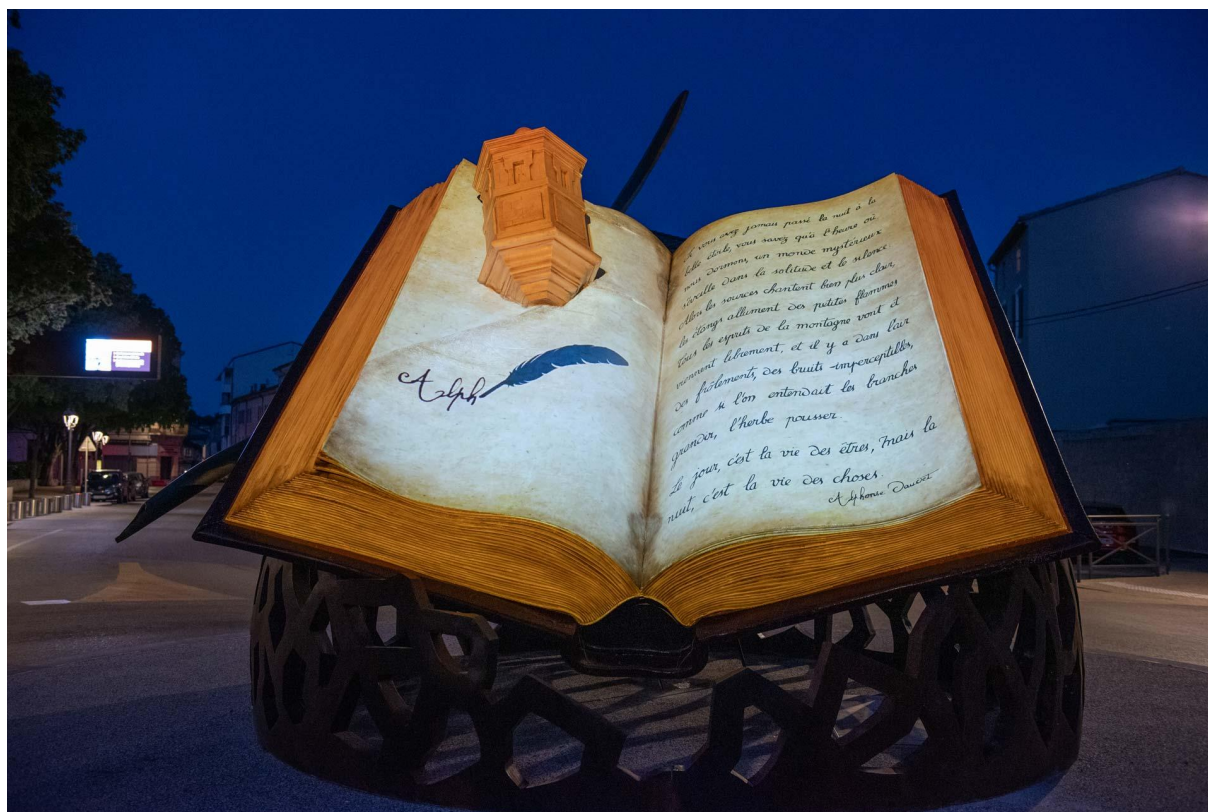 Alph
Si vous avez jamais passé la nuit à la
belle étoile, vous savez qu'à l'heure où
nous dormons, un monde mystérieux
s'éveille dans la solitude et le silence.
Alors les sources chantent bien plus clair,
les étangs allument des petites flammes
tous les esprits de la montagne vont et
viennent librement, et il y a dans l'air
des frôlements, des bruits imperceptibles,
comme si l'on entendait les branches
grandir, l'herbe pousser.
Le jour, c'est la vie des êtres, mais la
nuit, c'est la vie des choses.
Alphonse Daudet